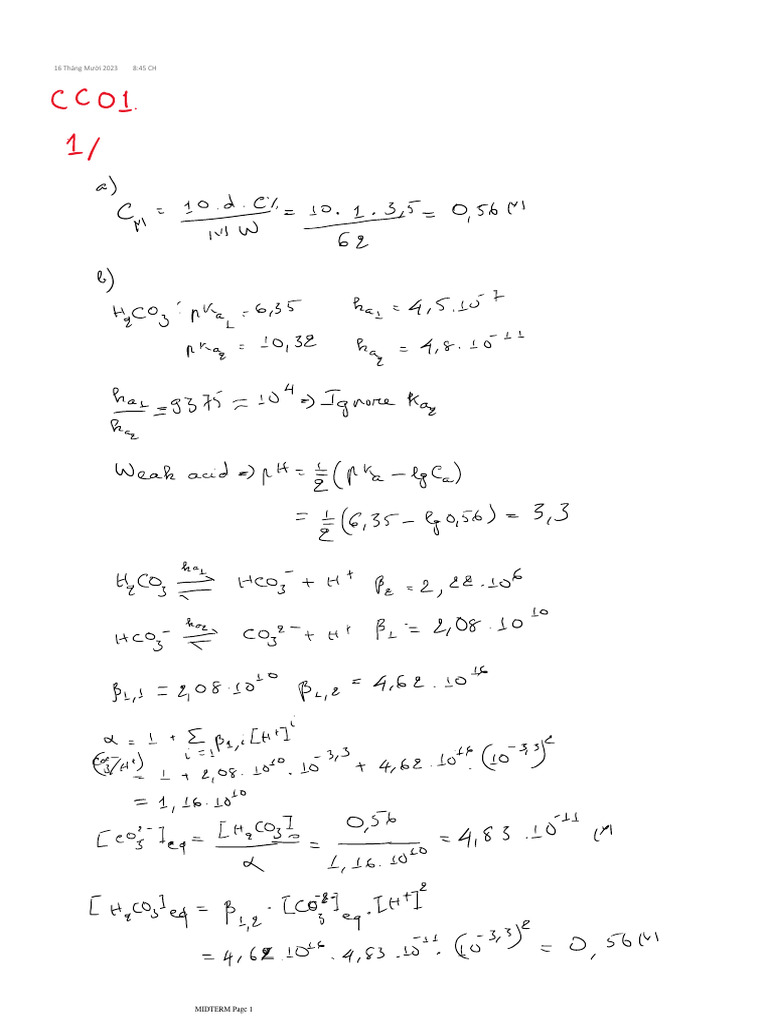 16 Tháng Mười 2023 8:45 CH
CC01.
1/
a)
C_M = 10.d.C% / MW = 10.1.3,5 / 62 = 0,56 M
b)
H₂CO₃ : pKa₁ = 6,35 ka₁ = 4,5.10⁻⁷
pKa₂ = 10,32 ka₂ = 4,8.10⁻¹¹
ka₁/ka₂ = 9375 ≈ 10⁴ => Ignore Ka₂
Weak acid => pH = 1/2 (pKa - lgCa)
= 1/2 (6,35 - lg0,56) = 3,3
H₂CO₃ ⇌ (ka₁) HCO₃⁻ + H⁺ β₂ = 2,22.10⁶
HCO₃⁻ ⇌ (ka₂) CO₃²⁻ + H⁺ β₁ = 2,08.10¹⁰
β₁,₁ = 2,08.10¹⁰ β₁,₂ = 4,62.10¹⁶
α = 1 + Σ i=1 β₁,i [H⁺]ⁱ
(CO₃²⁻/H⁺) = 1 + 2,08.10¹⁰.10⁻³,³ + 4,62.10¹⁶.(10⁻³,³)²
= 1,16.10¹⁰
[CO₃²⁻]eq = [H₂CO₃]₀ / α = 0,56 / 1,16.10¹⁰ = 4,83.10⁻¹¹ M
[H₂CO₃]eq = β₁,₂.[CO₃²⁻]eq.[H⁺]²
= 4,62.10¹⁶.4,83.10⁻¹¹.(10⁻³,³)² = 0,56 M
MIDTERM Page 1